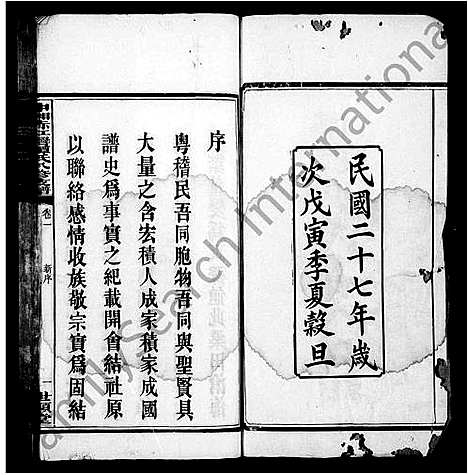 民國二十七年歲
次戊寅季夏穀旦
序
粵稽民吾同胞物吾同與聖賢具
大量之含宏積人成家積家成國
譜史爲事實之紀載開會結社原
以聯絡感情收族敬宗實爲固結
卷一
新序
一
世頭堂
Family Search International